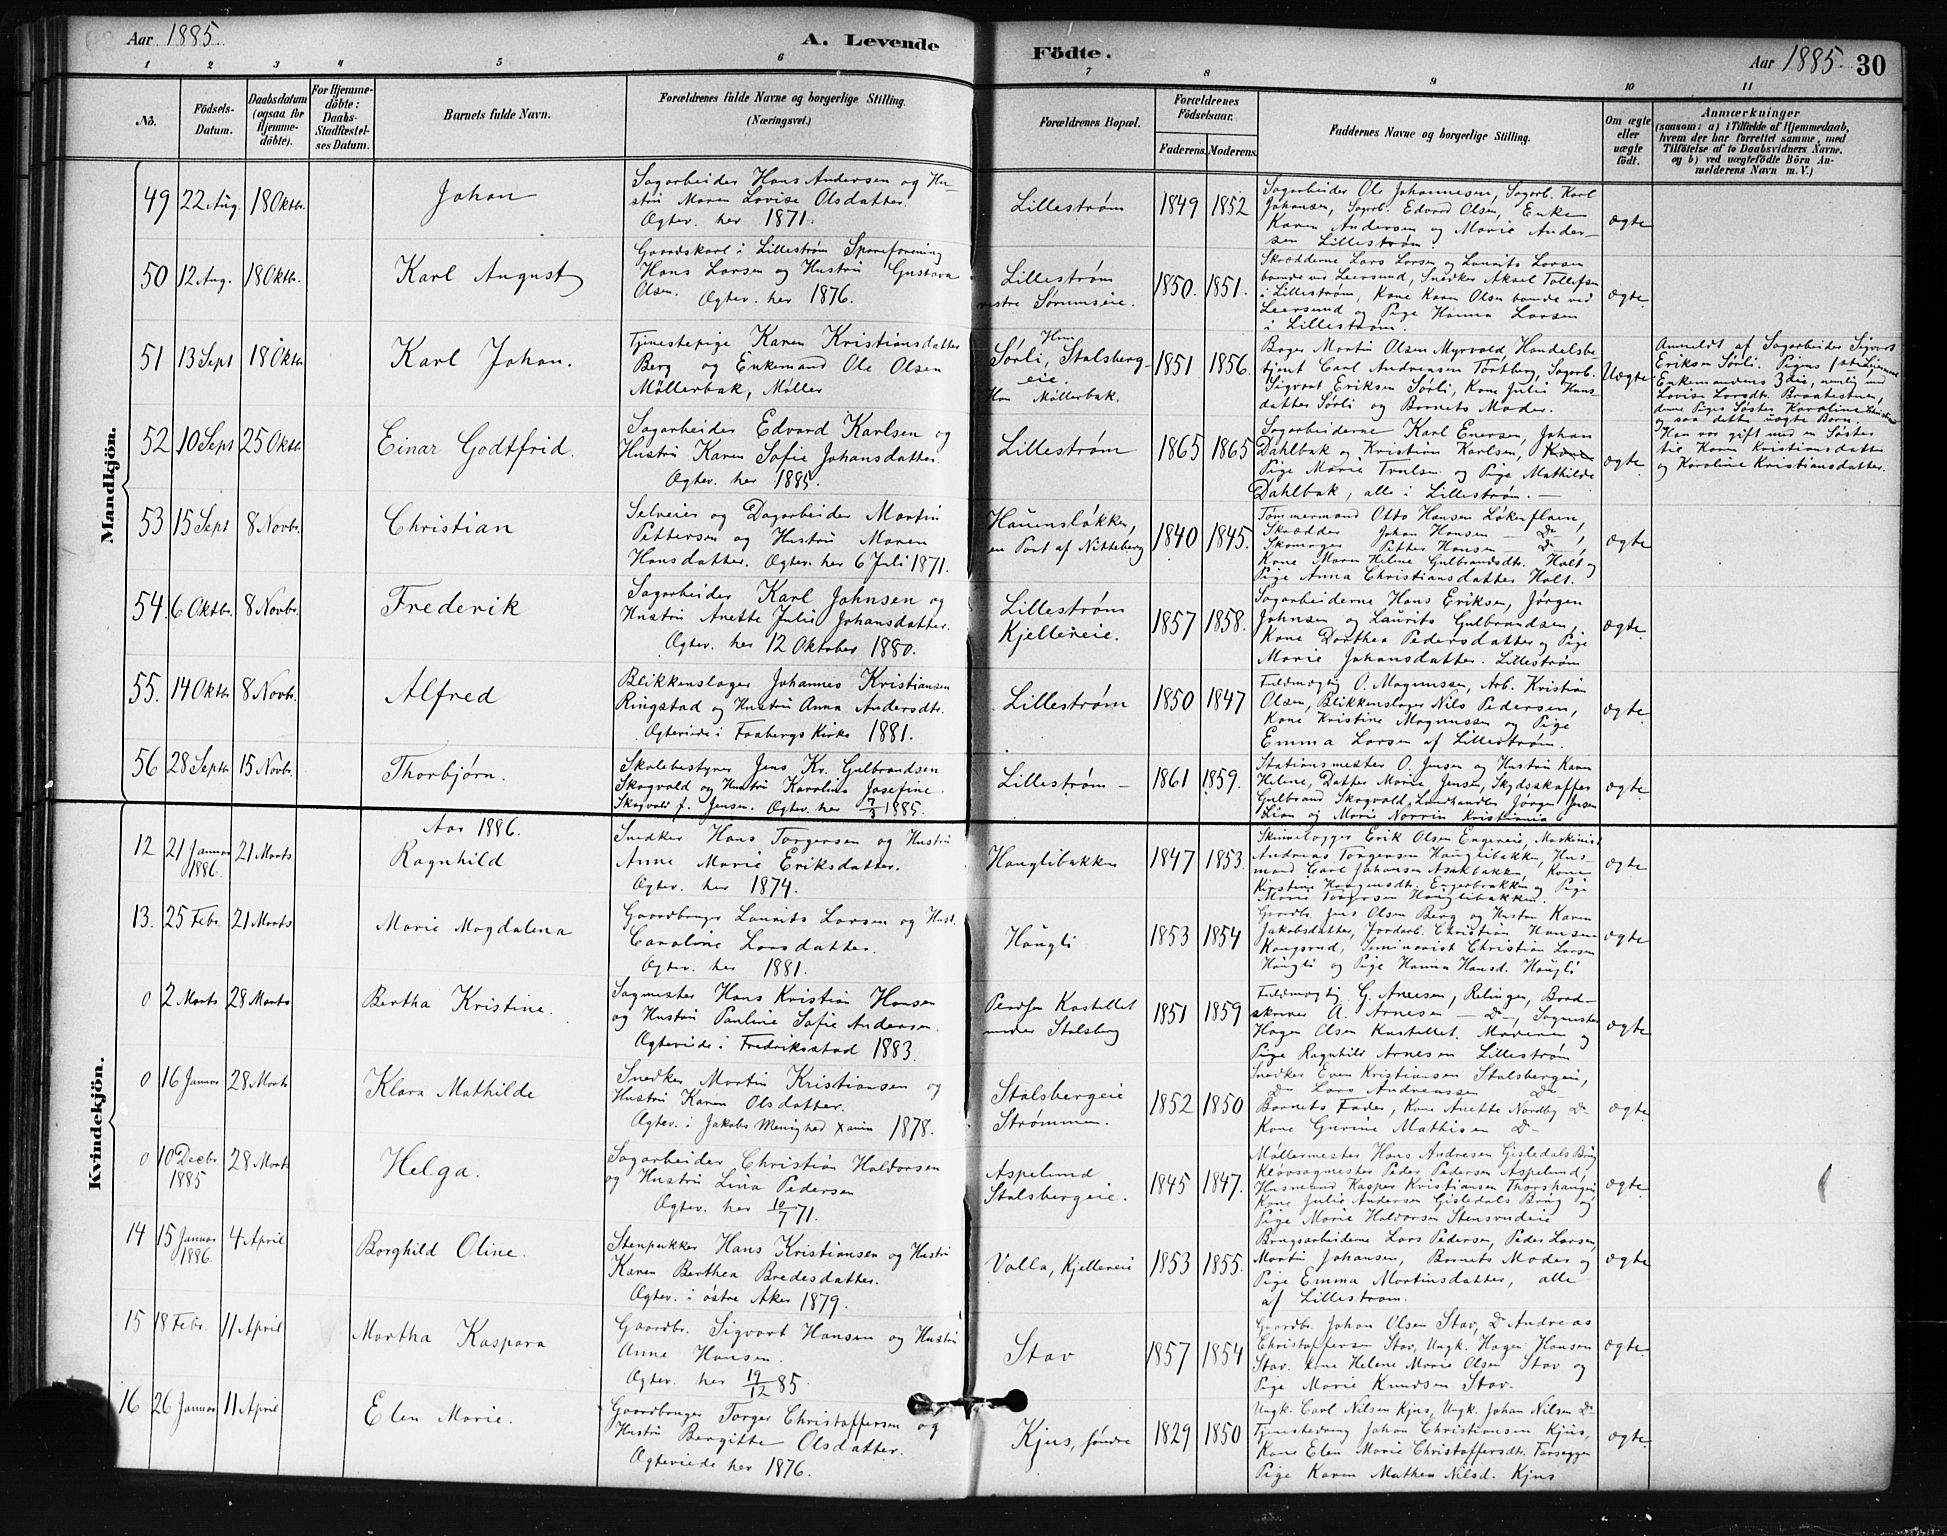 Aar 1885.
A. Levende
Födte.
Aar 1885. 30
1 2 3 4 5 6 7 8 9 10 11
No.
Födsels-
Datum.
Daabsdatum
(ogsaa for
Hjemme-
döbte).
For Hjemme-
döbte:
Daabs-
Stadfæstel-
ses Datum.
Barnets fulde Navn.
Forældrenes fulde Navne og borgerlige Stilling.
(Næringsvei.)
Forældrenes Bopæl.
Forældrenes
Födselsaar.
Faderens. Moderens.
Faddernes Navne og borgerlige Stilling.
Om ægte
eller
uægte
födt.
Anmærkninger
(saasom: a) i Tilfælde af Hjemmedaab,
hvem der har forrettet samme, med
Tilföielse af to Daabsvidners Navne.
og b) ved uægtefödte Börn An-
melderens Navn m. V.)
Mandkjön.
49 22 Aug. 18 Oktbr.
Johan
Sagarbeider Hans Andersen og Hu-
stru Maren Lovise Olsdatter.
Ægtev. her 1871.
Lillestrøm
1849 1852
Sagarbeider Ole Johannesen, Sagarb. Karl
Johansen, Sagarb. Edvard Olsen, Enke
Karen Andersen og Marie Ander-
sen Lillestrøm.
ægte
50 12 Aug. 18 Oktbr.
Karl August
Gaardskarl i Lillestrøm Spareforening
Hans Larsen og Hustru Gustava
Olsen. Ægtev. her 1876.
Lillestrøm
vestre Sørumseie.
1850. 1851.
Skrædderne Lars Larsen og Laurits Larsen
boende ved Leersund, Snedker Aksel Tollefsen
i Lillestrøm, Kone Karen Olsen boende ved
Leersund og Pige Hanna Larsen
i Lillestrøm.
ægte
51 13 Sept 18 Oktbr
Karl Johan.
Tjenestepige Karen Kristiansdatter
Berg og Enkemand Ole Olsen
Møllerbak, Møller
Hun
Sørli, Stalsberg-
eie.
Han Møllerbak.
1851 1856.
Bager Martin Olsen Myrvold Handelsbe-
tjent Carl Andreasen Tortberg, Sagarb.
Sigvart Eriksen Sørli, Kone Julie Hans-
datter Sørli og Barnets Moder.
Uægte.
Anmeldt af Sagarbeider Sigvart
Eriksen Sørli. Pigens
Enkemandens 3die, nemlig med
Lovise Larsdtr. Braatestuen,
denne Piges Søster Karoline
og saa dette uægte Barn.
Han var gift med en Søster
til Karen Kristiansdatter
og Karoline Kristiansdatter.
52 10 Sept 25 Oktbr
Einar Godtfrid.
Sagarbeider Edvard Karlsen og
Hustru Karen Sofie Johansdatter.
Ægtev. her 1885.
Lillestrøm
1865 1865
Sagarbeiderne Karl Enersen, Johan
Dahlbak og Kristian Karlsen, Kone
Pige Marie Trulsen og Pige Mathilde
Dahlbak, alle i Lillestrøm.—
ægte
53 15 Sept 8 Novbr.
Christian
Selveier og Dagarbeider Martin
Pettersen og Hustru Maren
Hansdatter. Ægtev. her 6 Juli 1871.
Hauensløkken,
en Part af Nitteberg
1840 1845.
Tømmermand Otto Hansen Løkenflaen,
Skrædder Johan Hansen — Do,
Skomager Petter Hansen — Do,
Kone Maren Helene Gulbrandsdtr. Holt og
Pige Anna Christiansdatter Holt.
ægte
54. 6 Oktbr. 8 Novbr.
Frederik
Sagarbeider Karl Johnsen og
Hustru Anette Julie Johansdatter.
Ægtev. her 12 Oktober 1880.
Lillestrøm
Kjellereie.
1857 1858.
Sagarbeiderne Hans Eriksen, Jørgen
Johnsen og Laurits Gulbrandsen,
Kone Dorthea Pedersdatter og Pige
Marie Johansdatter. Lillestrøm
ægte.
55. 14 Oktbr 8 Novbr.
Alfred
Blikkenslager Johannes Kristiansen
Ringstad og Hustru Anna Andersdtr.
Ægteviede i Faabergs Kirke 1881.
Lillestrøm
1850 1847
Fuldmægtig O. Magnussen, Arb. Kristian
Olsen, Blikkenslager Nils Pedersen,
Kone Kristine Magnussen og Pige
Emma Larsen af Lillestrøm.
ægte
56 28 Septbr 15 Novbr.
Thorbjørn.
Skolebestyrer Jens Kr. Gulbrandsen
Skogvold og Hustru Karoline Josefine
Skogvold f. Jensen. Ægtev. her 7/3 1885.
Lillestrøm —
1861 1859.
Stationsmester O. Jensen og Hustru Karen
Helene, Datter Marie Jensen, Skydsskaffer
Gulbrand Skogvold, Landhandler Jørgen Jensen
Lian og Marie Norrin Kristiania
ægte.
Kvindekjön.
Aar 1886.
12 21 Januar
1886. 21 Marts
Ragnhild
Snedker Hans Torgersen og Hustru
Anne Marie Eriksdatter.
Ægtev. her 1874.
Hauglibakken
1847 1853.
Skindlægger Erik Olsen Engereie, Maskinist
Andreas Torgersen Hauglibakken, Hus-
mand Carl Johansen Asakbakken, Kone
Kirstine Haagensdtr. Engerbrakken og Pige
Marie Torgersen Hauglibakken.
ægte
13. 25 Febr. 21 Marts
Marie Magdalena
Gaardbruger Laurits Larsen og Hust.
Caroline Larsdatter.
Ægtev. her 1881.
Haugli
1853 1854
Gaardb. Jens Olsen Berg og Hustru Karen
Jakobsdatter, Jordarb. Christian Hansen
Kongsrud, Seminarist Christian Larsen
Haugli og Pige Hanna Hansd. Haugli
ægte
0 2 Marts 28 Marts
Bertha Kristine.
Sagmester Hans Kristian Hansen
og Hustru Pauline Sofie Andersen.
Ægteviede i Fredriksstad 1883.
Kastellet
under Stalsberg
1851 1859
Fuldmægtig G. Arnesen, Relingen, Bord-
skriver A. Arnesen — Do —, Sagmester
Hagen Olsen Kastellet. Moderen og
Pige Ragnhild Arnesen Lillestrøm
ægte
0 16 Januar 28 Marts
Klara Mathilde
Snedker Martin Kristiansen og
Hustru Karen Olsdatter.
Ægtev. i Jakobs Menighed Xania 1878.
Stalsbergeie
Strømmen.
1852 1850
Snedker Even Kristiansen Stalsbergeie,
Do Lars Andreassen Do
Barnets Fader, Kone Anette Nordby Do
Kone Gurine Mathisen Do
ægte
0 10 Decbr
1885 28 Marts
Helga.
Sagarbeider Christian Haldorsen
og Hustru Lina Pedersen
Ægtev. her 10/7 71.
Aspelund
Stalsbergeie.
1845 1847.
Møllermester Hans Andresen Gisledals Brug
Kløvsagmester Peder Pedersen Aspelund,
Husmand Kasper Kristiansen Thorshaugeie,
Kone Julie Andersen Gisledals Brug og
Pige Marie Haldorsen Stensrudeie
ægte.
14 15 Januar
1886. 4 April
Borghild Oline.
Stenpukker Hans Kristiansen og Hustru
Karen Berthea Bredesdatter.
Ægtev. i østre Aker 1879.
Volla, Kjellereie
1853 1855.
Brugsarbeiderne Lars Pedersen, Peder Larsen,
Martin Johansen, Barnets Moder og
Pige Emma Martinsdatter, alle
af Lillestrøm.
ægte
15 18 Febr. 11 April
Martha Kaspara
Gaardbr. Sigvart Hansen og Hustru
Anne Hansen.
Ægtev. her 19/12 85.
Stav
1857 1854
Gaardbr. Johan Olsen Stav, Do Andreas
Christoffersen Stav, Ungk. Hagen Hansen
Stav. Kone Helene Marie Olsen Stav og
Pige Marie Knudsen Stav.
ægte.
16 26 Januar 11 April
Elen Marie.
Gaardbruger Torger Christoffersen og
Hustru Bergitte Olsdatter.
Ægteviede her 1876.
Kjus, søndre
1829 1850
Ungk. Carl Nilsen Kjus, Ungk. Johan Nilsen Do
Tjenestedreng Johan Christiansen Kjus,
Kone Elen Marie Christoffersdtr. Farseggen
Pige Karen Mathea Nilsd. Kjus
ægte.